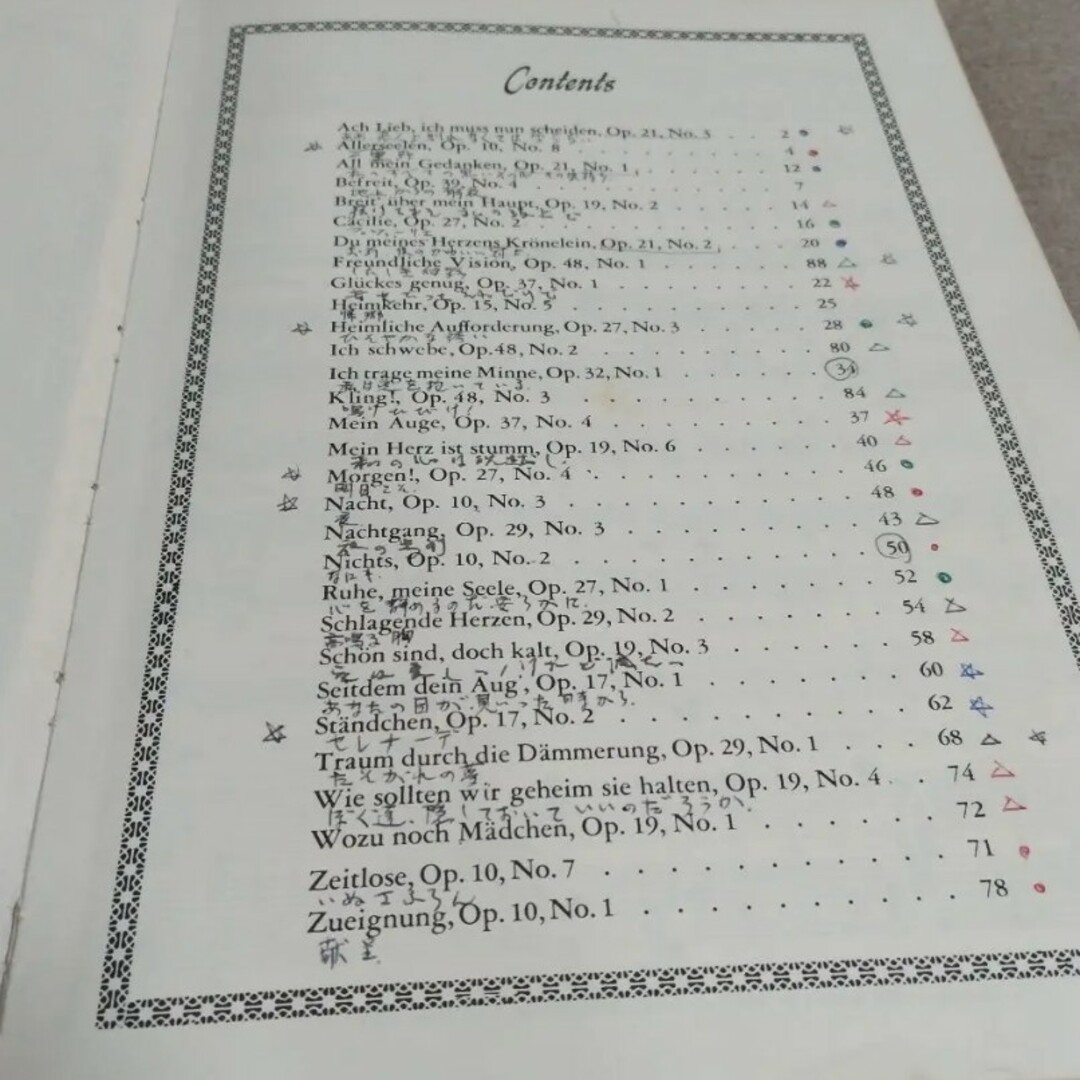 Contents
Ach Lieb, ich muss nun scheiden, Op. 21, No. 3 . . 2
Allerseelen, Op. 10, No. 8 . . . . . . . . . . 4
All mein Gedanken, Op. 21, No. 1, . . . . . . . 12
Befreit, Op. 39, No. 4 . . . . . . . . . . . 7
Breit über mein Haupt, Op. 19, No. 2 . . . . . . 14
Cäcilie, Op. 27, No. 2 . . . . . . . . . . . 16
Du meines Herzens Krönelein, Op. 21, No. 2, . . . . 20
Freundliche Vision, Op. 48, No. 1 . . . . . . . 88
Glückes genug, Op. 37, No. 1 . . . . . . . . 22
Heimkehr, Op. 15, No. 5 . . . . . . . . . . 25
帰郷
Heimliche Aufforderung, Op. 27, No. 3 . . . . . 28
ひそやかな誘い
Ich schwebe, Op.48, No. 2 . . . . . . . . . 80
Ich trage meine Minne, Op. 32, No. 1 . . . . . . 34
私は愛を抱いている
Kling!, Op. 48, No. 3 . . . . . . . . . . 84
鳴りひびけ!
Mein Auge, Op. 37, No. 4 . . . . . . . . . 37
Mein Herz ist stumm, Op. 19, No. 6 . . . . . . 40
私の心は沈黙し
Morgen!, Op. 27, No. 4 . . . . . . . . . . 46
明日こそ
Nacht, Op. 10, No. 3 . . . . . . . . . . . 48
夜
Nachtgang, Op. 29, No. 3 . . . . . . . . . 43
Nichts, Op. 10, No. 2 . . . . . . . . . . 50
なにも
Ruhe, meine Seele, Op. 27, No. 1 . . . . . . . 52
Schlagende Herzen, Op. 29, No. 2 . . . . . . . 54
高鳴る胸
Schön sind, doch kalt, Op. 19, No. 3 . . . . . . 58
Seitdem dein Aug', Op. 17, No. 1 . . . . . . . 60
あなたの目が見いった時から
Ständchen, Op. 17, No. 2 . . . . . . . . . 62
セレナーデ
Traum durch die Dämmerung, Op. 29, No. 1 . . . 68
たそがれの夢
Wie sollten wir geheim sie halten, Op. 19, No. 4 . . 74
ぼく達、隠しておいていいのだろうか
Wozu noch Mädchen, Op. 19, No. 1 . . . . . . 72
Zeitlose, Op. 10, No. 7 . . . . . . . . . . 71
いぬサフラン
Zueignung, Op. 10, No. 1 . . . . . . . . . 78
献呈